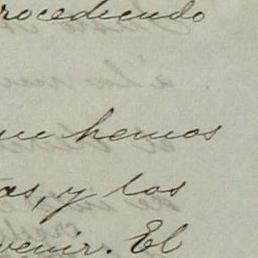 rocediendo
ue hemos
as, y los
venir. El